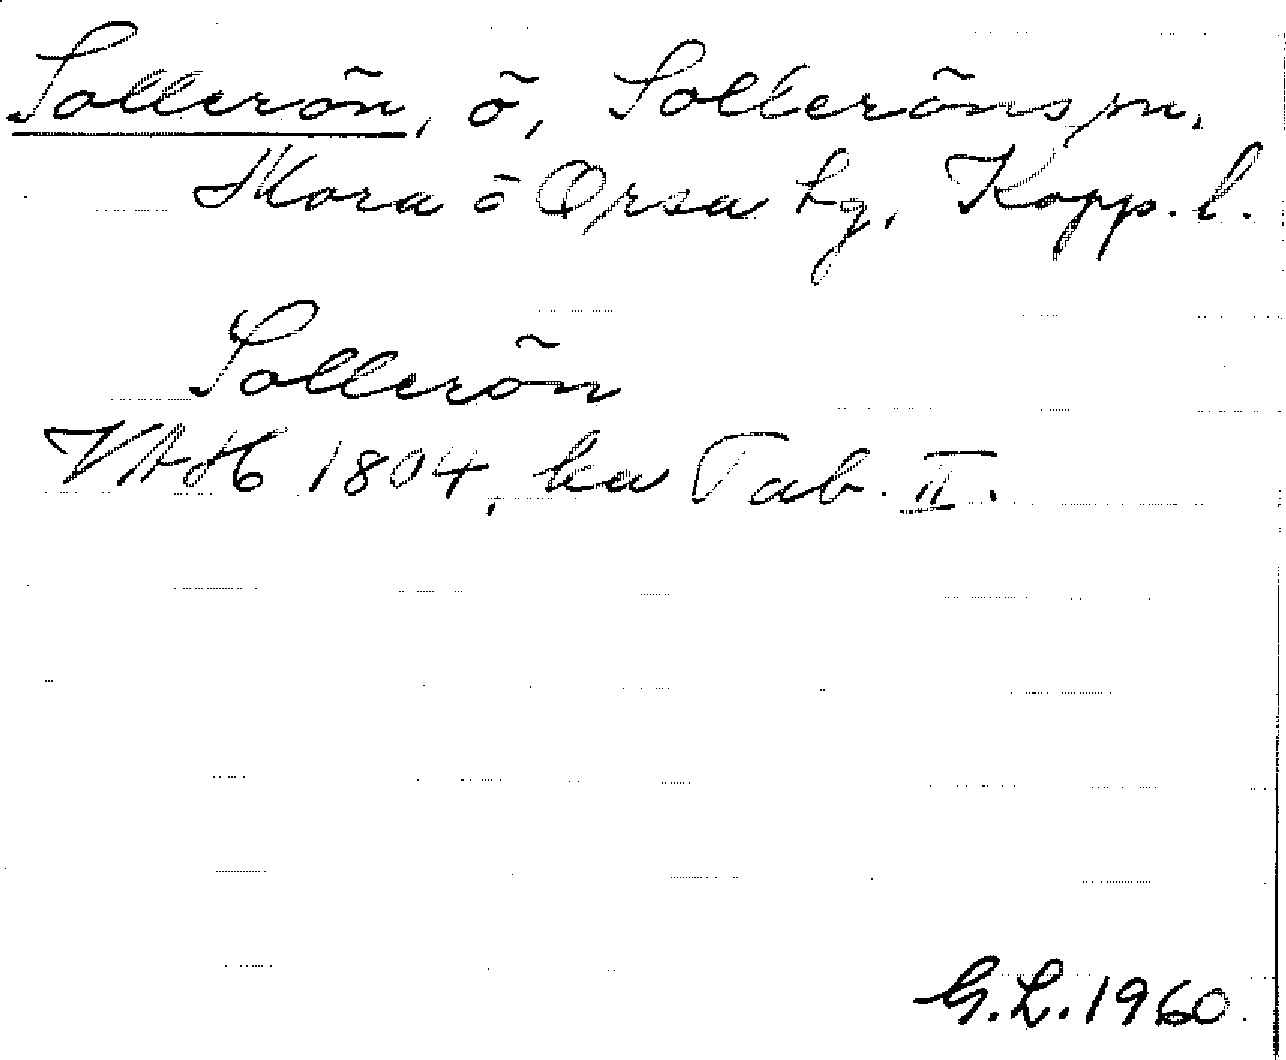 Sollerön, ö, Solleröns sn.
Mora ö Orsa tg, Kopp. l.
Sollerön
VAH 1804, ka Tab. II.
G.L. 1960